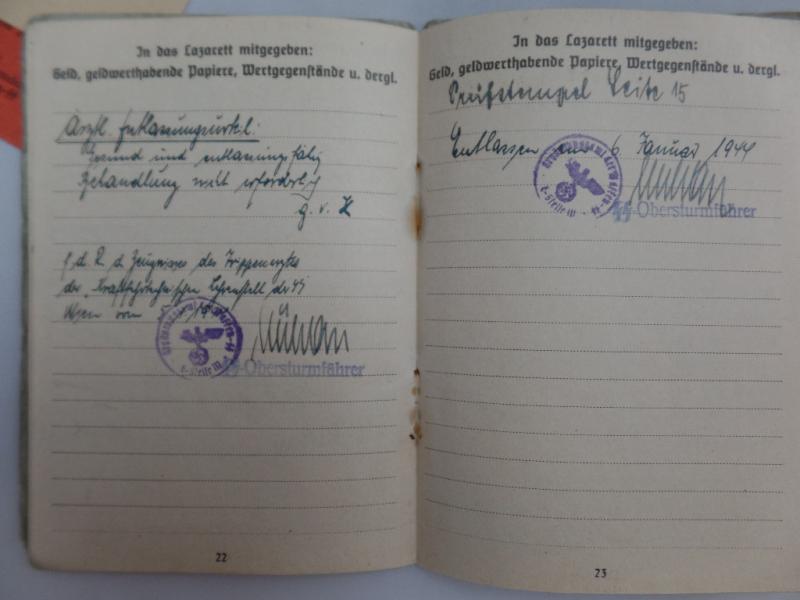 In das Lazarett mitgegeben:
Geld, geldwerthabende Papiere, Wertgegenstände u. dergl.
Ärztl. Entlassungsurtl.:
Gesund und entlassungsfähig
Behandlung nicht erforderlich
g. v. H
f. d. R. d. Zeugnisses des Truppenarztes
der Kraftfahrtechnischen Lehranstalt der SS
Wien vom
SS-Obersturmführer
22
In das Lazarett mitgegeben:
Geld, geldwerthabende Papiere, Wertgegenstände u. dergl.
Prüfstempel Seite 15
Entlassen am 6. Januar 1944
der Waffen-SS
SS-Obersturmführer
23